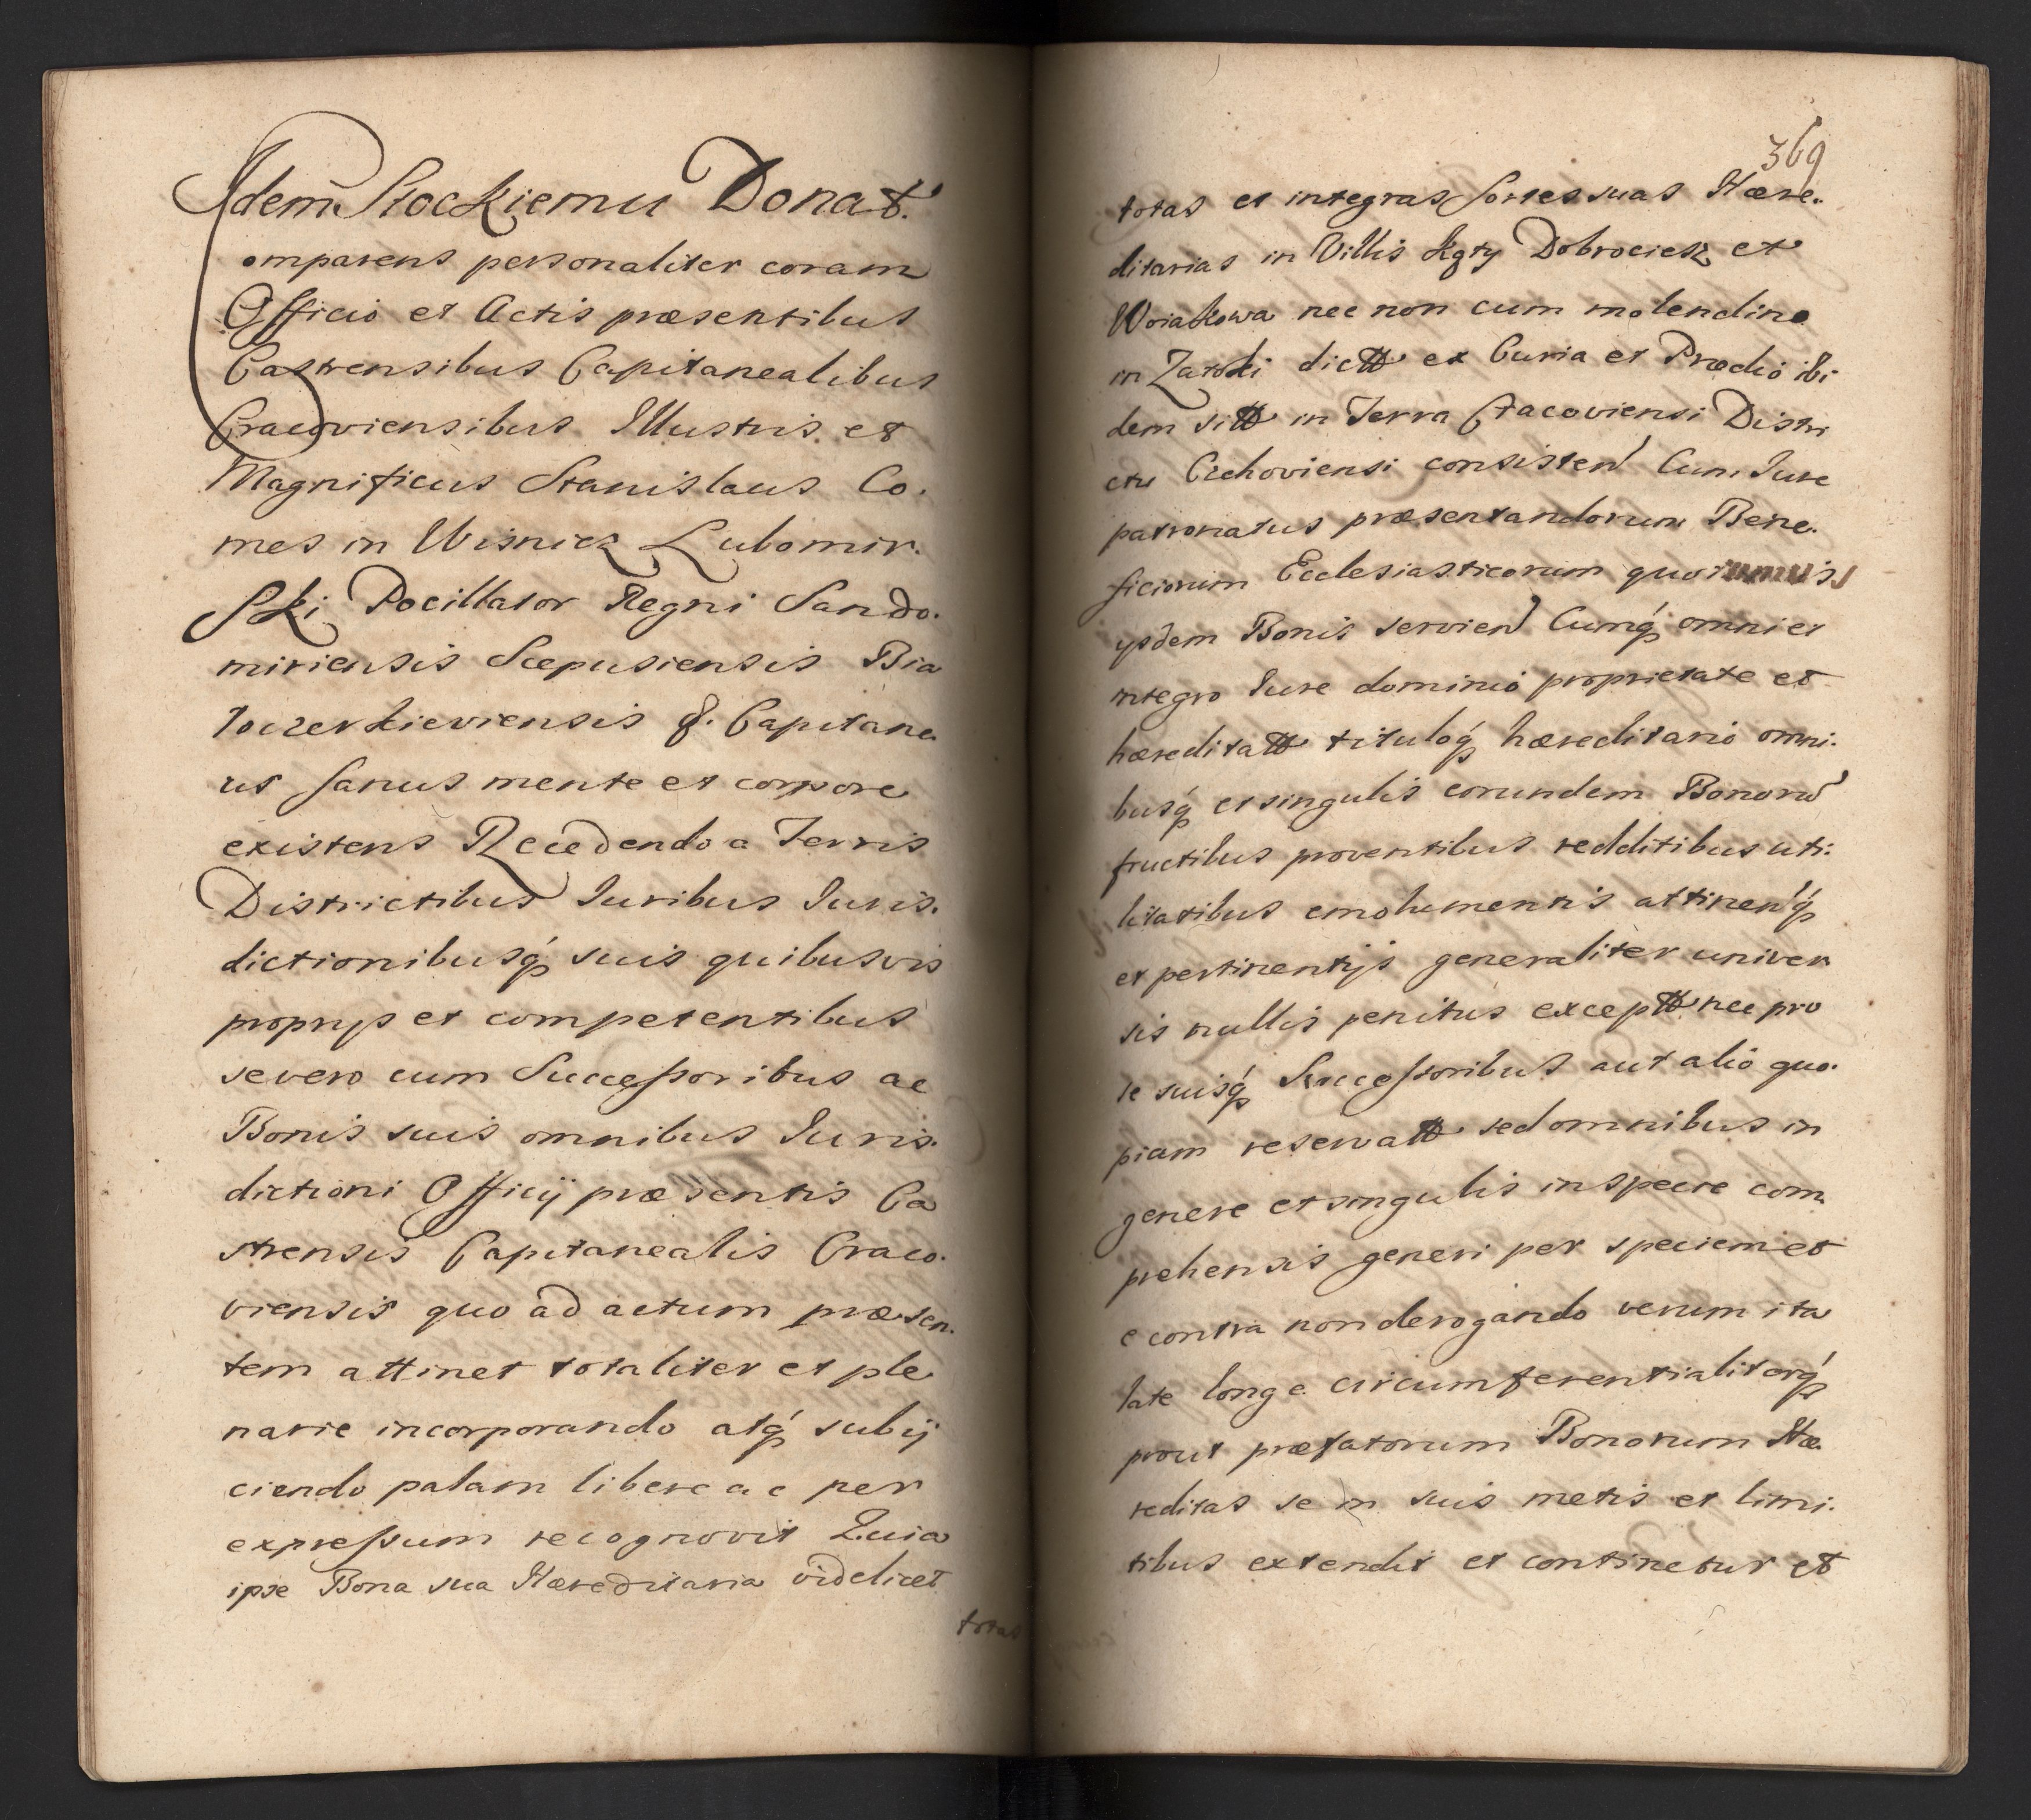 Idem Stockiemu Donat.
Comparens personaliter coram
Officio et Actis præsentibus
Castrensibus Capitanealibus
Cracoviensibus Illustris et
Magnificus Stanislaus Co.
mes in Wisnicz Lubomir.
ski Pocillator Regni Sando.
miriensis Scepusiensis Bia
locerkieviensis &. Capitane
us sanus mente et corpore
existens Recedendo a Terris
Districtibus Iuribus Iuris.
dictionibusq́ suis quibusvis
proprijs et competentibus
severo cum Successoribus ac
Bonis suis omnibus Iuris.
dictioni Officij præsentis Ca
strensis Capitanealis Craco.
viensis quo ad actum præsen.
tem attinet totaliter et ple
narie incorporando atq́ subij
ciendo palam libere ac per
expressum recognovit Quia
ipse Bona sua Hæreditaria videlicet
totas
369
totas et integras sortes suas Hære.
ditarias in Villis Kąty Dobrociesz et
Woiakowa nec non cum molendino
in Zatoki dictt ex Curia et Prædio ibi
dem sitt in Terra Cracoviensi Distri
ctu Czchoviensi consisten Cum Iure
patronatus præsentandorum Bene.
ficiorum Ecclesiasticorum quorumvis
ijsdem Bonis servien Cumq́ omni et
integro Iure dominio proprietate et
hæreditatt tituloq́ hæreditario omni.
busq́ et singulis eorundem Bonorū
fructibus proventibus redditibus uti.
litatibus emolumentis attinenq́
et pertinentijs generaliter univer
sis nullis penitus exceptt nec pro
se suisq́ Successoribus aut alio quo.
piam reservatt sed omnibus in
genere et singulis in specie com
prehensis generi per speciem et
e contra non derogando verum ita
late longe circumferentialiterq́
prout præfatorum Bonorum Hæ.
reditas se in suis metis et limi.
tibus extendit et continetur et